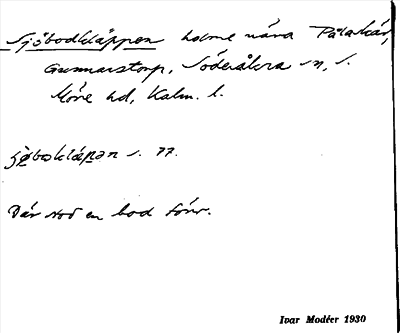 Sjöbodkläppen holme nära Påleskär,
Gunnarstorp, Söderåkra sn, S.
Möre hd, Kalm. l.
s. 77.
Där stod en bod förr.
Ivar Modéer 1930